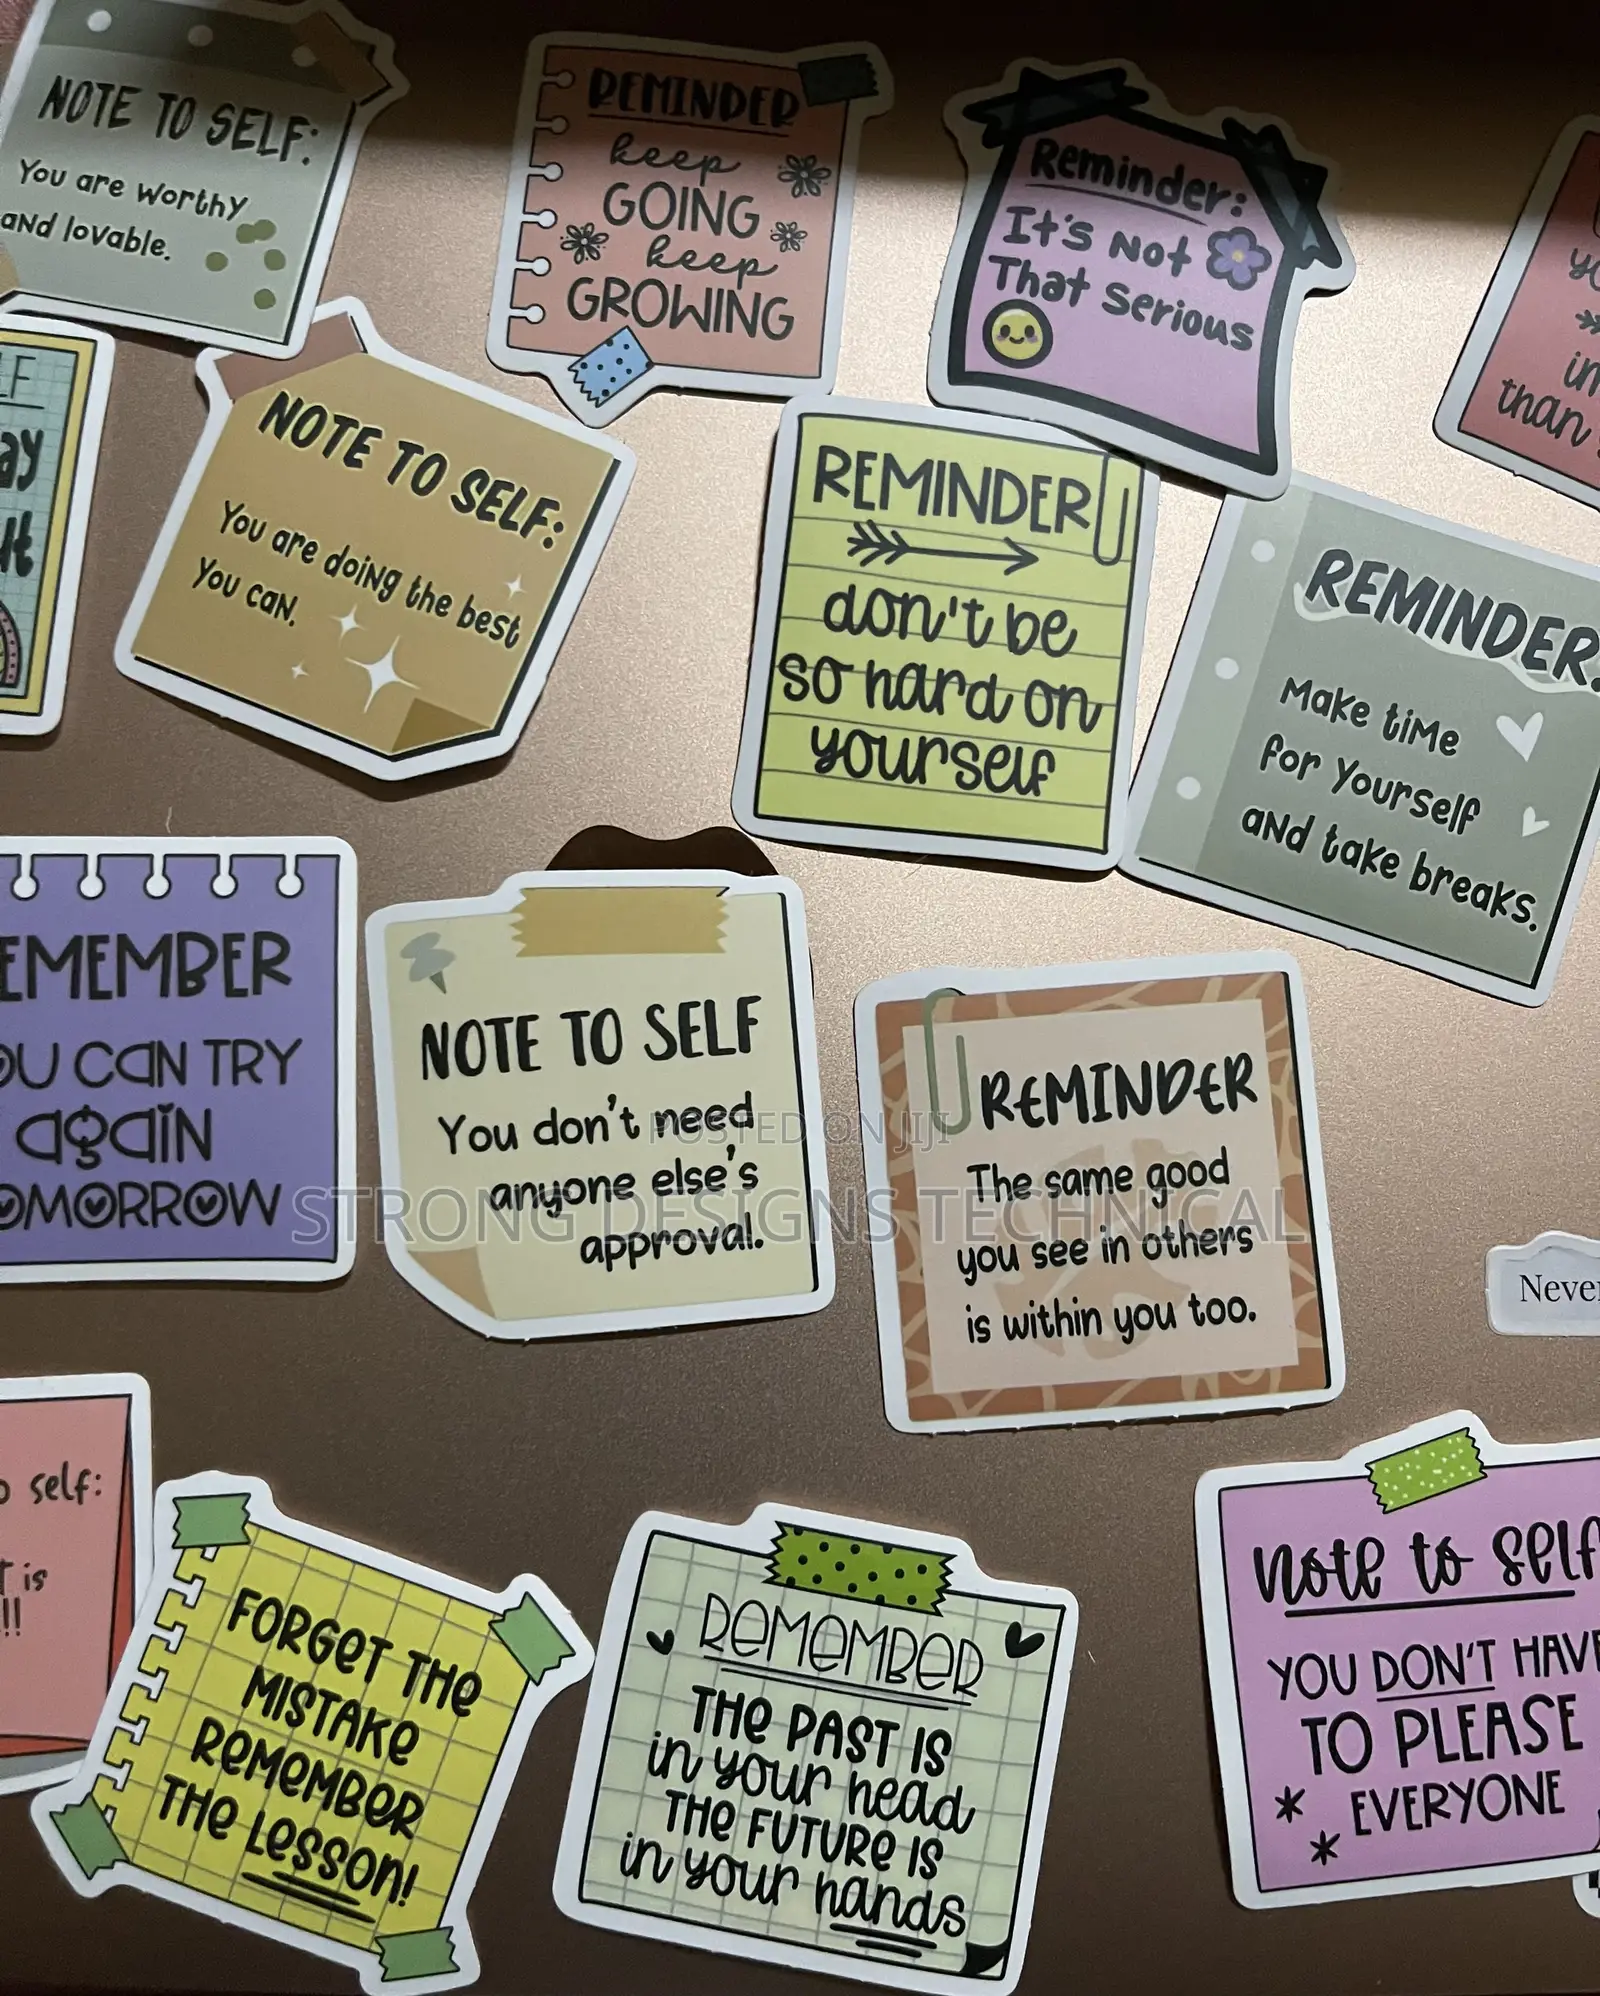 NOTE TO SELF:
You are worthy
and lovable.
REMINDER
keep
GOING
keep
GROWING
Reminder:
It's Not
That Serious
than
NOTE TO SELF:
You are doing the best
You can.
REMINDER
don't be
so hard on
yourself
REMINDER:
Make time
for Yourself
and take breaks.
EMEMBER
OU CAN TRY
again
OMORROW
NOTE TO SELF
You don't need
anyone else's
approval.
REMINDER
The same good
you see in others
is within you too.
POSTED ON JIJI
STRONG DESIGNS TECHNICAL
Never
self:
is
!!
FORGET THE
MISTAKE
REMEMBER
THE LESSON!
REMEMBER
THE PAST IS
in your head
THE FUTURE IS
in your hands
Note to self
YOU DON'T HAVE
TO PLEASE
EVERYONE